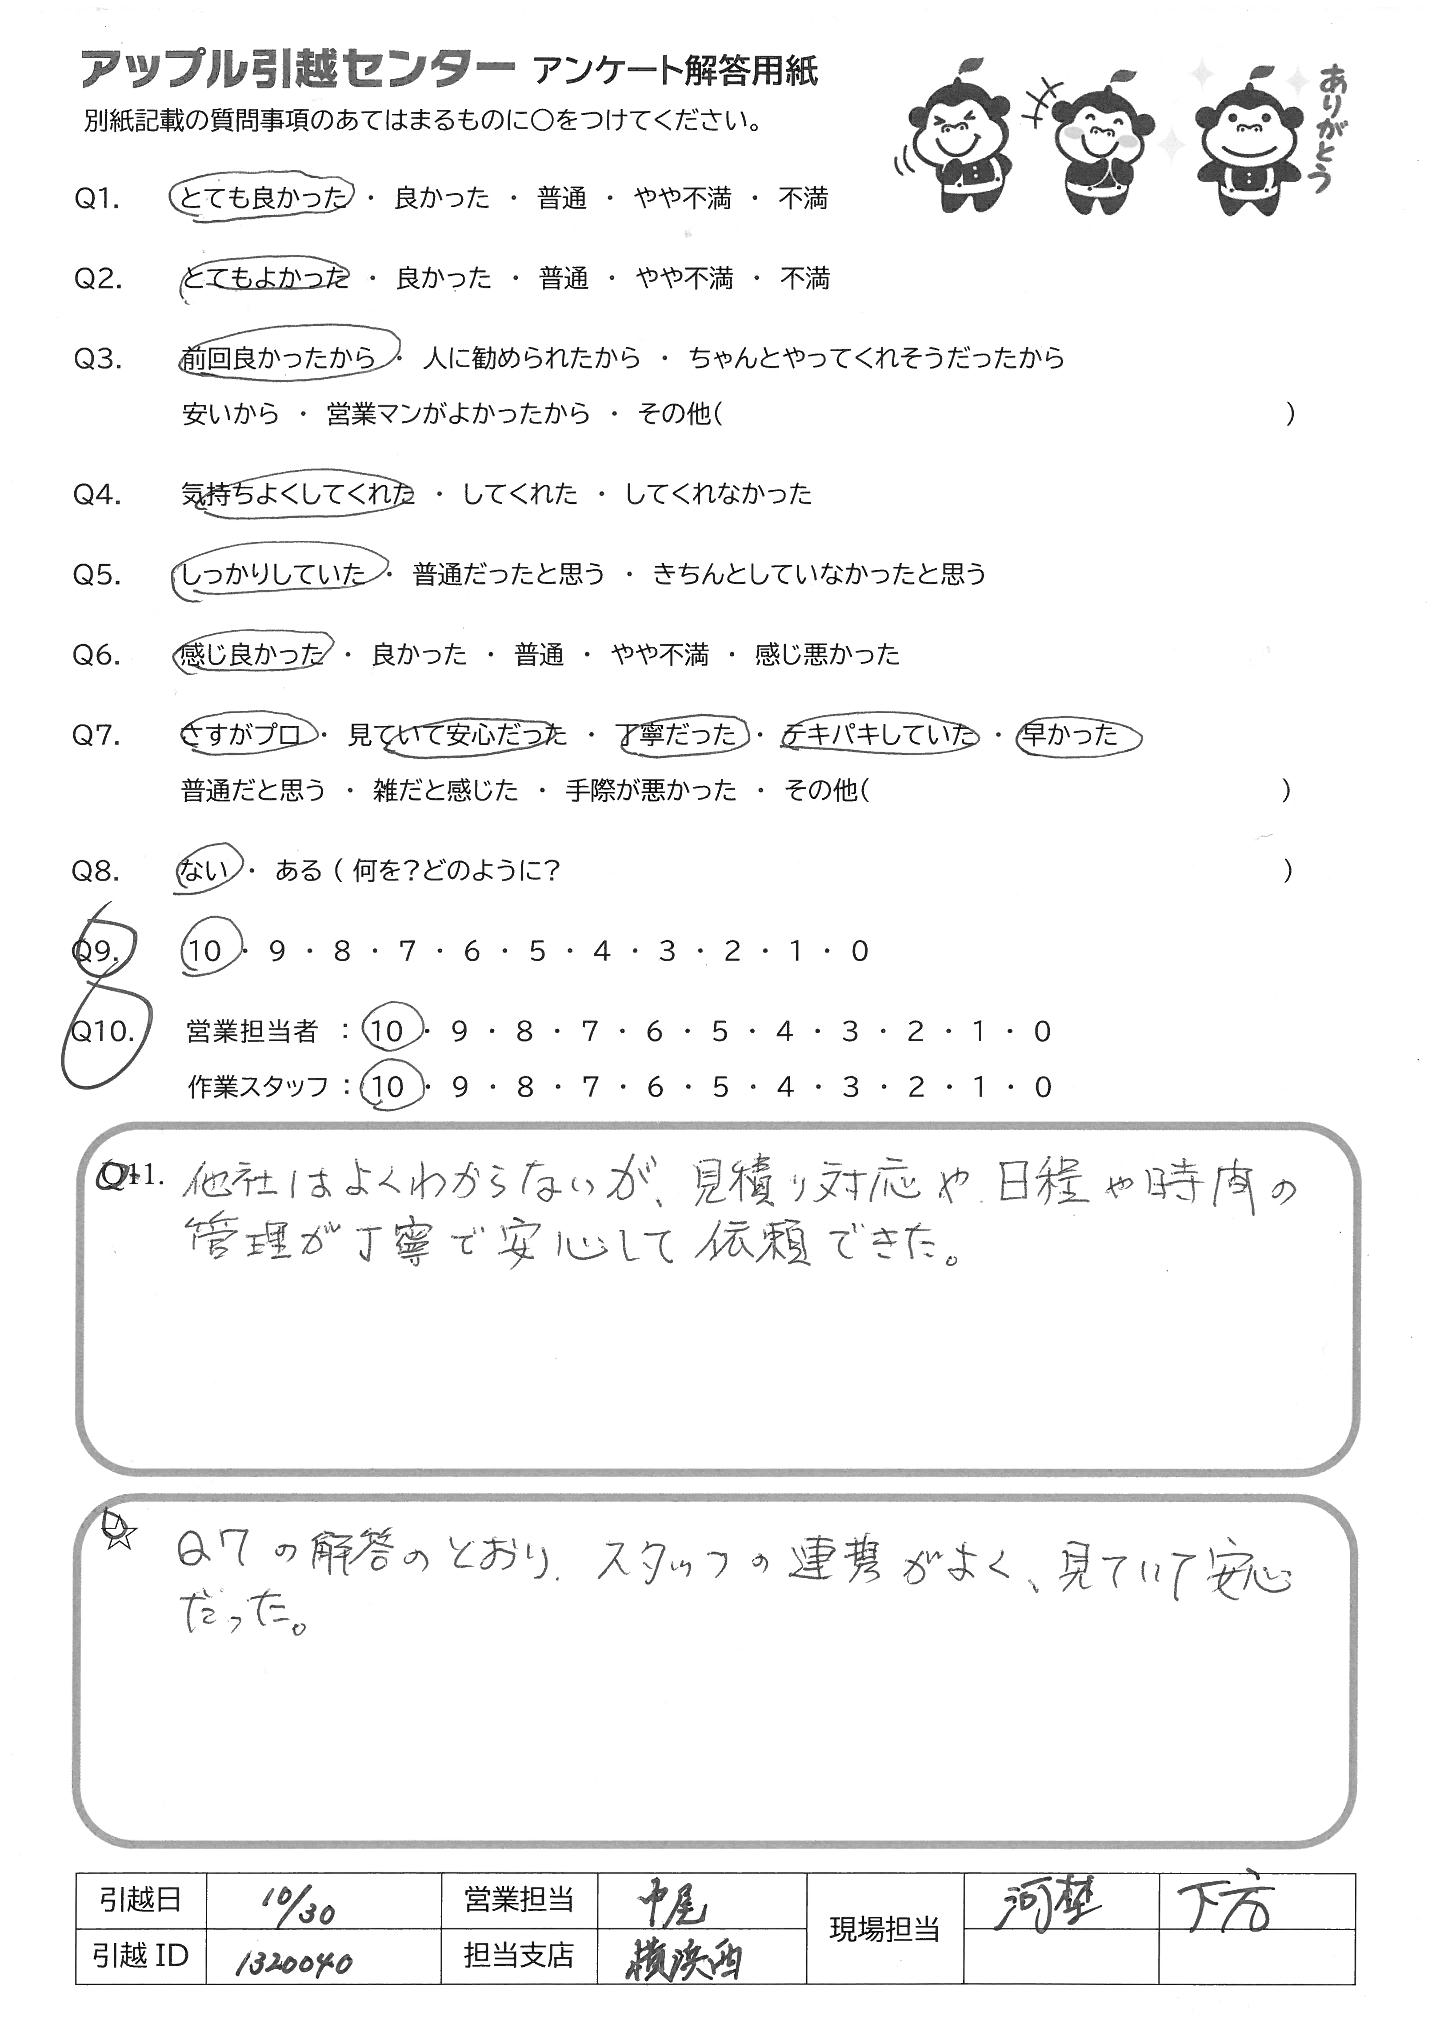 アップル引越センター アンケート解答用紙
別紙記載の質問事項のあてはまるものに〇をつけてください。
ありがとう
Q1. とても良かった ・ 良かった ・ 普通 ・ やや不満 ・ 不満
Q2. とてもよかった ・ 良かった ・ 普通 ・ やや不満 ・ 不満
Q3. 前回良かったから ・ 人に勧められたから ・ ちゃんとやってくれそうだったから
安いから ・ 営業マンがよかったから ・ その他( )
Q4. 気持ちよくしてくれた ・ してくれた ・ してくれなかった
Q5. しっかりしていた ・ 普通だったと思う ・ きちんとしていなかったと思う
Q6. 感じ良かった ・ 良かった ・ 普通 ・ やや不満 ・ 感じ悪かった
Q7. さすがプロ ・ 見ていて安心だった ・ 丁寧だった ・ テキパキしていた ・ 早かった
普通だと思う ・ 雑だと感じた ・ 手際が悪かった ・ その他( )
Q8. ない ・ ある ( 何を?どのように? )
Q9. 10 ・ 9 ・ 8 ・ 7 ・ 6 ・ 5 ・ 4 ・ 3 ・ 2 ・ 1 ・ 0
Q10. 営業担当者 : 10 ・ 9 ・ 8 ・ 7 ・ 6 ・ 5 ・ 4 ・ 3 ・ 2 ・ 1 ・ 0
作業スタッフ : 10 ・ 9 ・ 8 ・ 7 ・ 6 ・ 5 ・ 4 ・ 3 ・ 2 ・ 1 ・ 0
Q11. 他社はよくわからないが、見積り対応や、日程や時間の
管理が丁寧で安心して依頼できた。
☆ Q7の解答のとおり、スタッフの連携がよく、見ていて安心
だった。
引越日 10/30 営業担当 中尾 現場担当 下方
引越ID 1320040 担当支店 横浜西